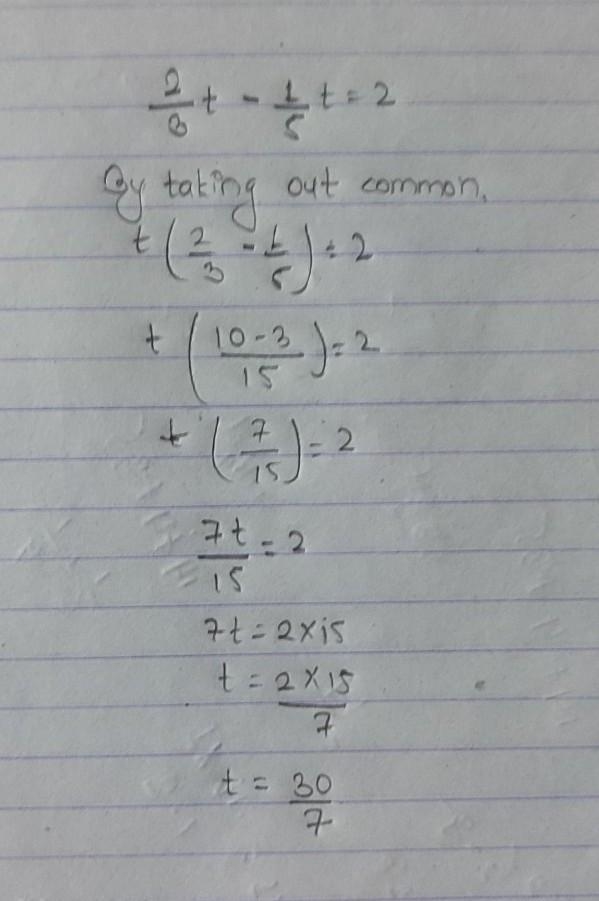 2/3 t - 1/5 t = 2
By taking out common,
t (2/3 - 1/5) = 2
t ((10-3)/15) = 2
t (7/15) = 2
7t/15 = 2
7t = 2×15
t = (2×15)/7
t = 30/7